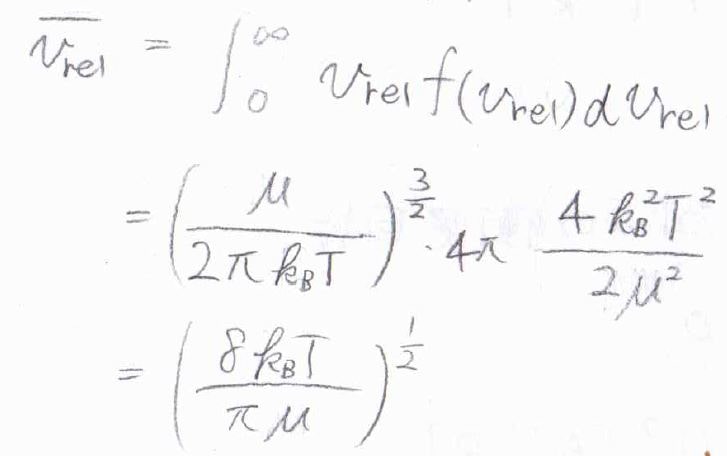 $\overline{v_{rel}} = \int_0^\infty v_{rel} f(v_{rel}) d v_{rel}$
$= \left( \frac{\mu}{2 \pi k_B T} \right)^{\frac{3}{2}} \cdot 4\pi \frac{4 k_B^2 T^2}{2 \mu^2}$
$= \left( \frac{8 k_B T}{\pi \mu} \right)^{\frac{1}{2}}$